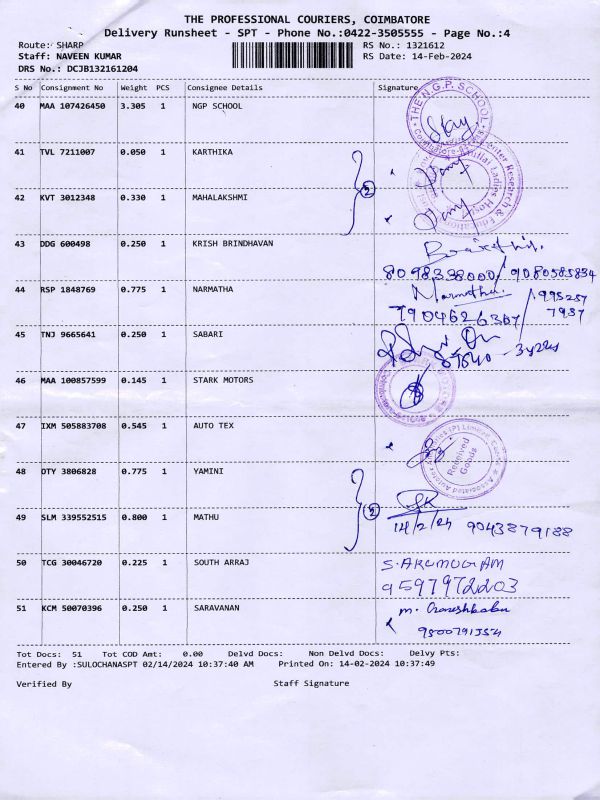 THE PROFESSIONAL COURIERS, COIMBATORE
Delivery Runsheet - SPT - Phone No.:0422-3505555 - Page No.:4
Route: SHARP RS No.: 1321612
Staff: NAVEEN KUMAR RS Date: 14-Feb-2024
DRS No.: DCJB132161204
S No Consignment No Weight PCS Consignee Details Signature
40 MAA 107426450 3.305 1 NGP SCHOOL
THE N.G.P. SCHOOL
41 TVL 7211007 0.050 1 KARTHIKA
2
42 KVT 3012348 0.330 1 MAHALAKSHMI
43 DDG 600498 0.250 1 KRISH BRINDHAVAN
8098338000 / 9080585834
44 RSP 1848769 0.775 1 NARMATHA Narmatha
7904626367
45 TNJ 9665641 0.250 1 SABARI
46 MAA 100857599 0.145 1 STARK MOTORS
47 IXM 505883708 0.545 1 AUTO TEX
Received Goods
48 OTY 3806828 0.775 1 YAMINI
2
49 SLM 339552515 0.800 1 MATHU
14/2/24 9043879188
50 TCG 30046720 0.225 1 SOUTH ARRAJ S.ARUMUGAM
9597972203
51 KCM 50070396 0.250 1 SARAVANAN
Tot Docs: 51 Tot COD Amt: 0.00 Delvd Docs: Non Delvd Docs: Delvy Pts:
Entered By :SULOCHANASPT 02/14/2024 10:37:40 AM Printed On: 14-02-2024 10:37:49
Verified By Staff Signature